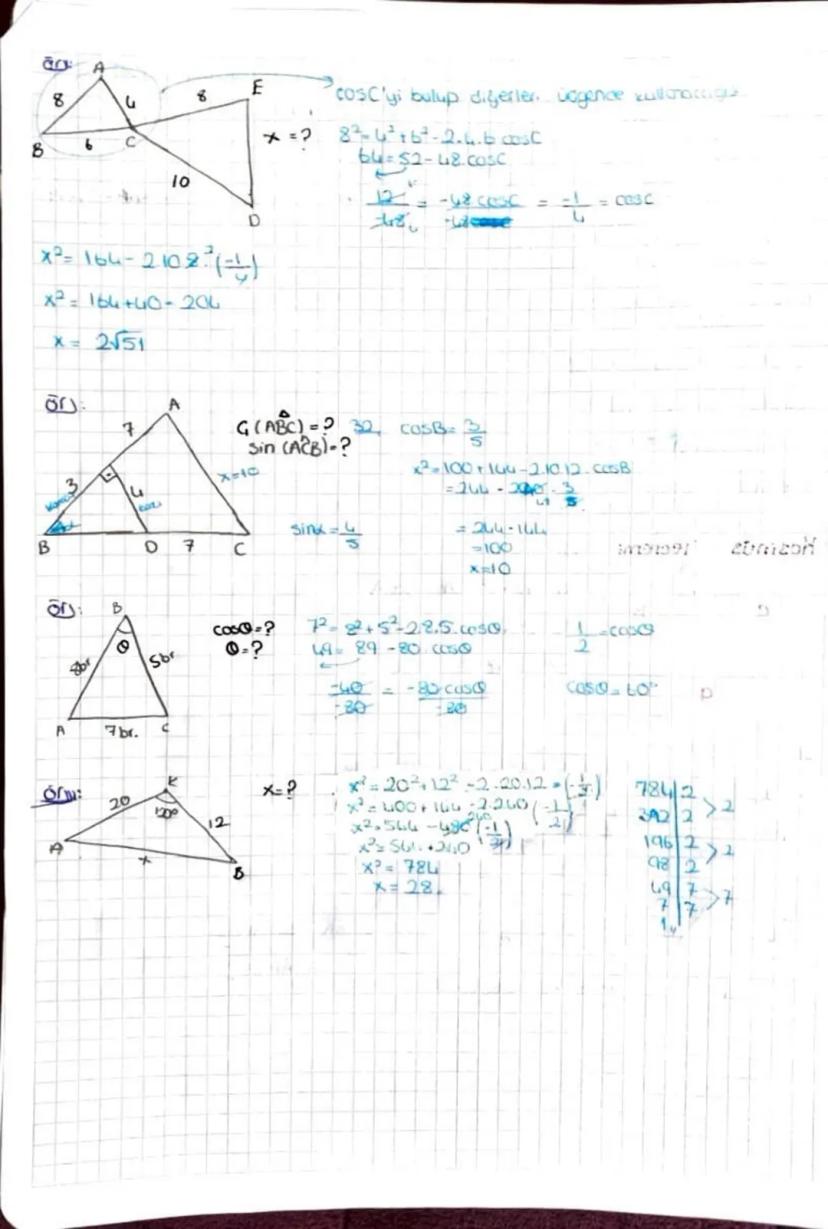 Örn:
A
8
4
8
E
B
6
C
10
D
x = ?
cosC'yi bulup diğerler. üçgende
8² = 4² + 6² - 2.4.6 cosC
64 = 52 - 48.cosC
12/-48 = -48 cosC/-48 = -1/4 = cosC
x² = 164 - 2.10.8.(-1/4)
x² = 164 + 40 = 204
x = 2√51
Ör:
A
7
3
4
x=10
B
D
7
C
Ç(ABC) = ? 32
sin(ACB) = ?
cosB = 3/5
x² = 100 + 144 - 2.10.12.cosB
= 244 - 240 . 3/5
sinα = 4/5
= 244 - 144
= 100
x = 10
Ör:
B
θ
8br
5br
A
7br.
C
cosθ = ?
θ = ?
7² = 8² + 5² - 2.8.5.cosθ
49 = 89 - 80.cosθ
-40/-80 = -80 cosθ/-80
1/2 = cosθ
cosθ = 60°
Örn:
K
20
120°
12
A
x
B
x = ?
x² = 20² + 12² - 2.20.12.(-1/2)
x² = 400 + 144 - 2.240 (-1/2)
x² = 544 - 480 (-1/2)
x² = 544 + 240
x² = 784
x = 28
784 | 2
392 | 2 > 2
196 | 2
98 | 2 > 2
49 | 7
7 | 7 > 7
1